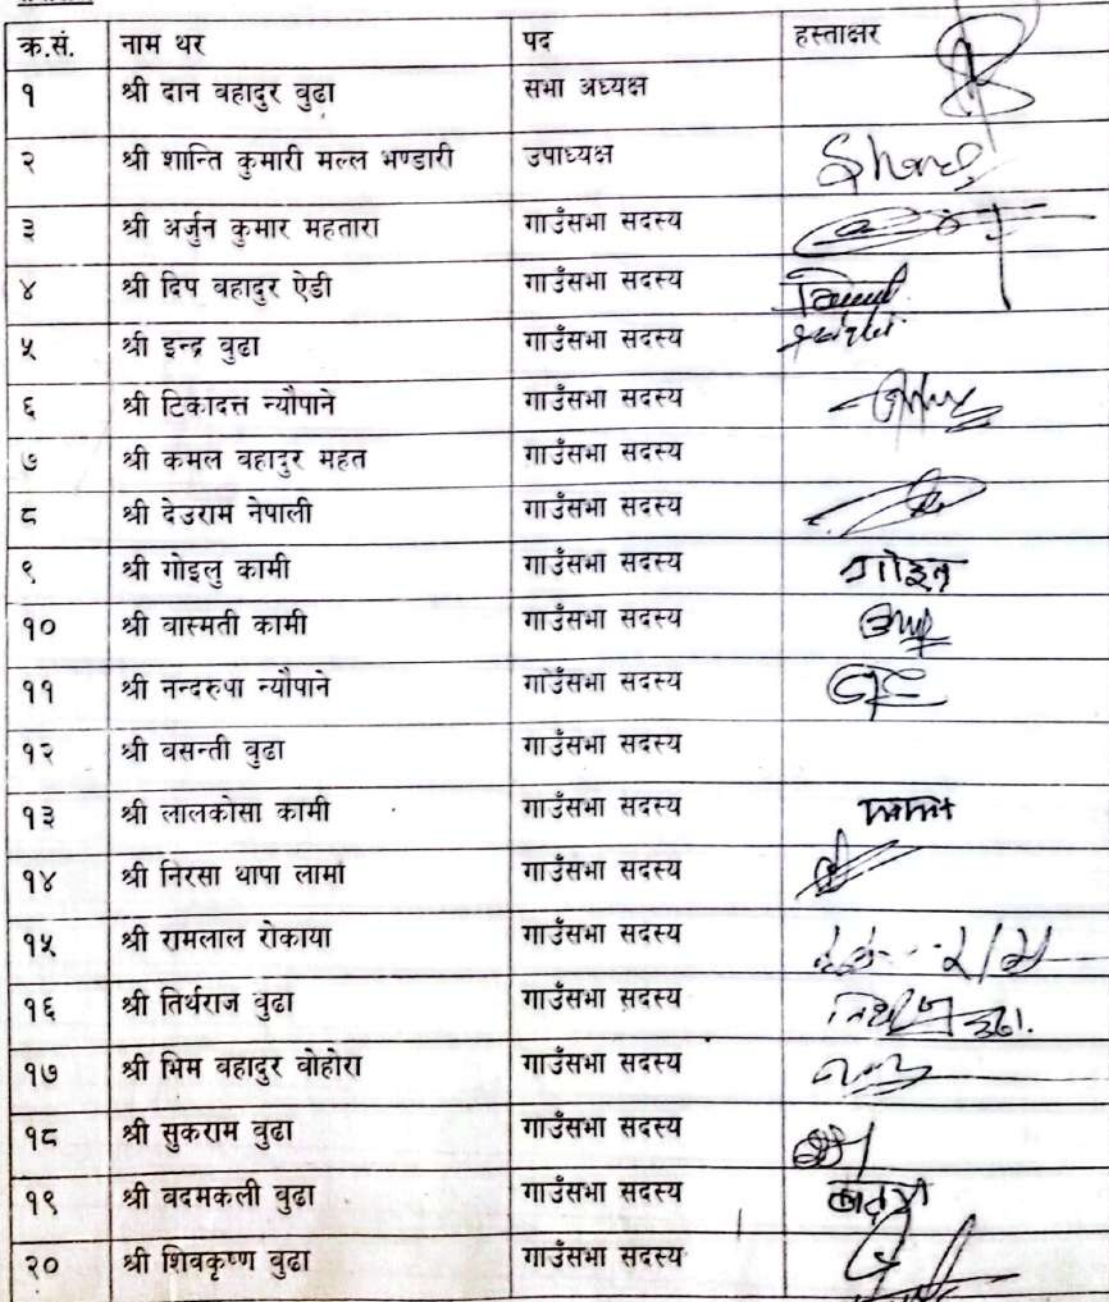 क्र.सं. नाम थर पद हस्ताक्षर
१ श्री दान वहादुर वुढा सभा अध्यक्ष
२ श्री शान्ति कुमारी मल्ल भण्डारी उपाध्यक्ष
३ श्री अर्जुन कुमार महतारा गाउँसभा सदस्य
४ श्री दिप वहादुर ऐडी गाउँसभा सदस्य
५ श्री इन्द्र वुढा गाउँसभा सदस्य
६ श्री टिकादत्त न्यौपाने गाउँसभा सदस्य
७ श्री कमल वहादुर महत गाउँसभा सदस्य
८ श्री देउराम नेपाली गाउँसभा सदस्य
९ श्री गोइलु कामी गाउँसभा सदस्य
१० श्री वास्मती कामी गाउँसभा सदस्य
११ श्री नन्दरुपा न्यौपाने गाउँसभा सदस्य
१२ श्री वसन्ती वुढा गाउँसभा सदस्य
१३ श्री लालकोसा कामी गाउँसभा सदस्य
१४ श्री निरसा थापा लामा गाउँसभा सदस्य
१५ श्री रामलाल रोकाया गाउँसभा सदस्य
१६ श्री तिर्थराज वुढा गाउँसभा सदस्य
१७ श्री भिम वहादुर वोहोरा गाउँसभा सदस्य
१८ श्री सुकराम वुढा गाउँसभा सदस्य
१९ श्री वदमकली वुढा गाउँसभा सदस्य
२० श्री शिवकृष्ण वुढा गाउँसभा सदस्य